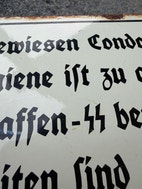 ewiesen Condo
iene ist zu
affen-ᛋᛋ be
iten sind